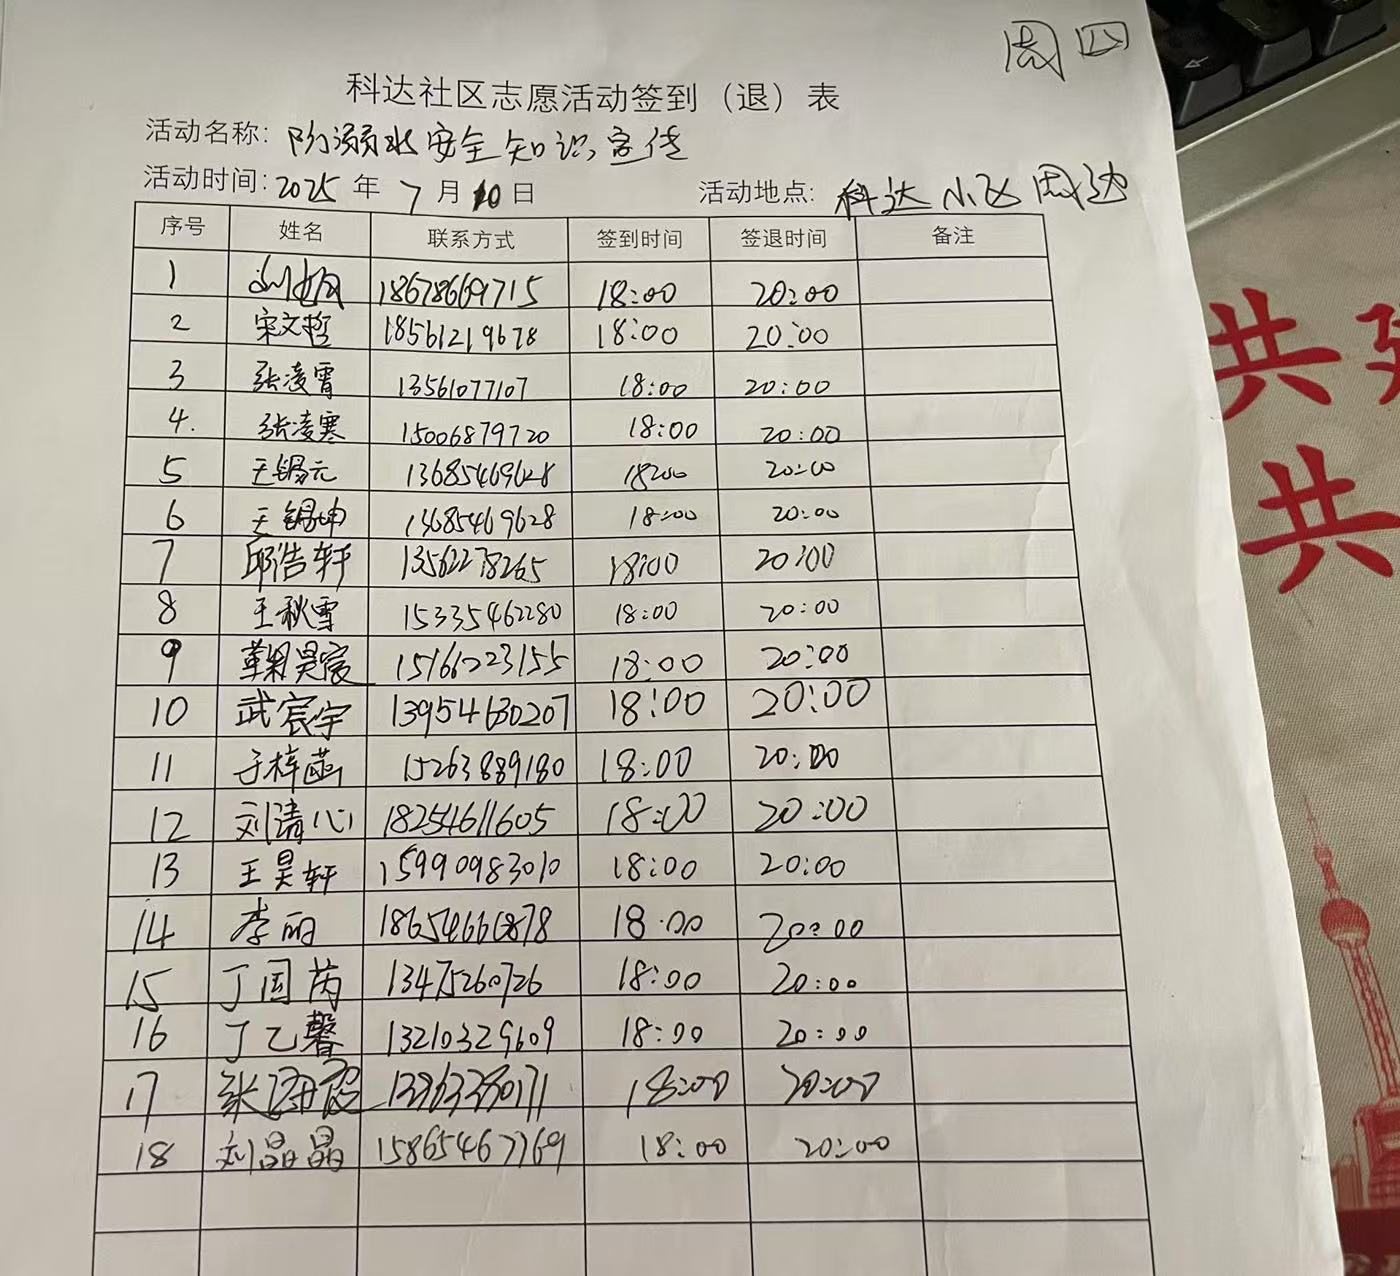 周四
科达社区志愿活动签到（退）表
活动名称：防溺水安全知识宣传
活动时间：2025年7月10日 活动地点：科达小区周边
序号 姓名 联系方式 签到时间 签退时间 备注
1 18678669715 18:00 20:00
2 宋文哲 18561219678 18:00 20:00
3 张凌霄 13561077107 18:00 20:00
4. 张凌寒 15006879720 18:00 20:00
5 王锡元 13685469628 18:00 20:00
6 王锡坤 13685469628 18:00 20:00
7 邱浩轩 13562278265 18:00 20:00
8 王秋雪 15335462280 18:00 20:00
9 鞠昊宸 15161223155 18:00 20:00
10 武宸宇 13954630207 18:00 20:00
11 于梓菡 15263889180 18:00 20:00
12 刘清心 18254611605 18:00 20:00
13 王昊轩 15990983010 18:00 20:00
14 李丽 18654666878 18:00 20:00
15 丁国芮 13475260726 18:00 20:00
16 丁乙馨 13210329609 18:00 20:00
17 18:00 20:00
18 刘晶晶 15865467769 18:00 20:00
共
共